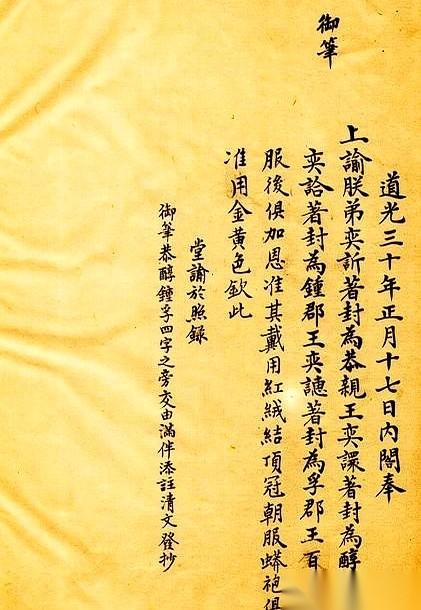 御筆
道光三十年正月十七日内閣奉
上諭朕弟奕訢著封為恭親王奕譞著封為醇
奕詥著封為鍾郡王奕譓著封為孚郡王百
服後俱加恩准其戴用紅絨結頂冠朝服蟒袍俱
准用金黄色欽此
堂諭於照録
御筆恭醇鍾孚四字之旁交由滿伴添註清文登抄